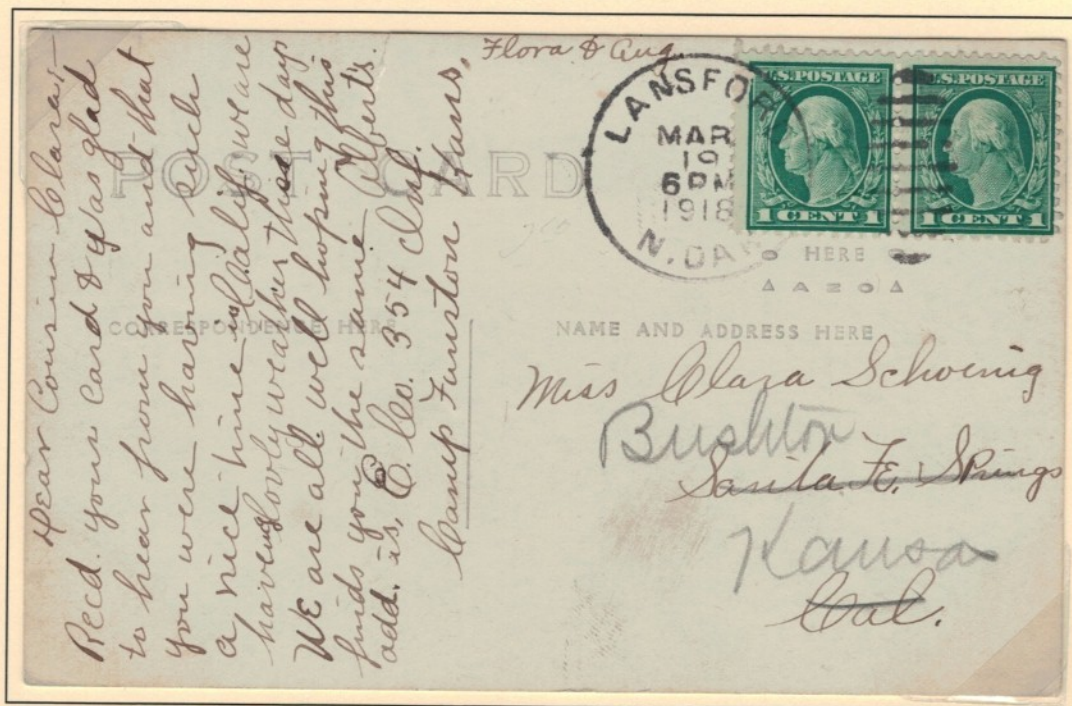 Dear Cousin Clara:-
Recd. your card & was glad
to hear from you and that
you were having such
a nice time in Calif. we are
haveing lovly weather these days
We are all well hoping this
finds you the same Alberts.
add. is, E. Co. 354 Inf.
Camp Funston Kans,
Flora & Aug.
POST CARD
CORRESPONDENCE HERE
LANSFOR
MAR
19
6 PM
1918
N. DAK
U.S. POSTAGE
1 CENT 1
U.S. POSTAGE
1 CENT 1
HERE
AZO
NAME AND ADDRESS HERE
Miss Clara Schoenig
Bushton
Santa Fe, Springs
Kansa
Cal.